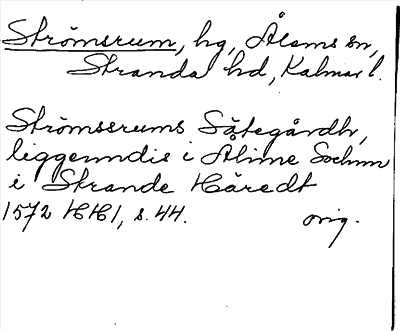 Strömsrum, hg, Ålems sn,
Stranda hd, Kalmar l.
Strömssrums Sätegårdh,
liggenndis i Åline Sochnn
i Strande Häredt
1572 HH1, s. 44. orig.